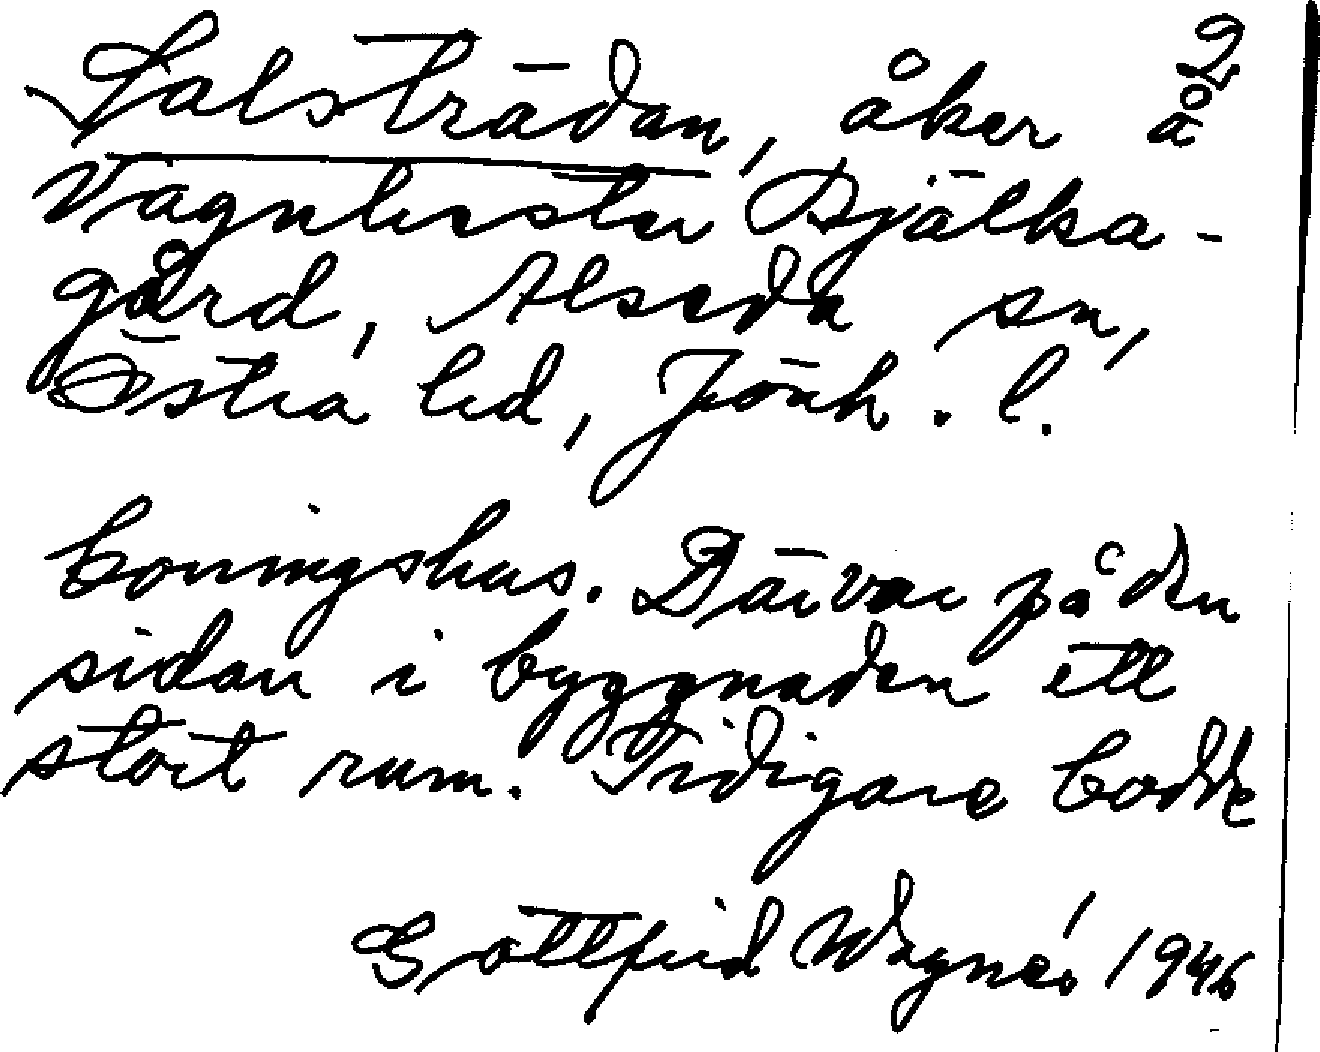 2
Salsträdan, åker å
Vagnhester Bjälka-
gård, Alseda sn,
Östra hd, Jönk. l.
boningshus. Där var på den
sidan i byggnaden ett
stort rum. Tidigare bodde
Gottfrid Wagnér 1946